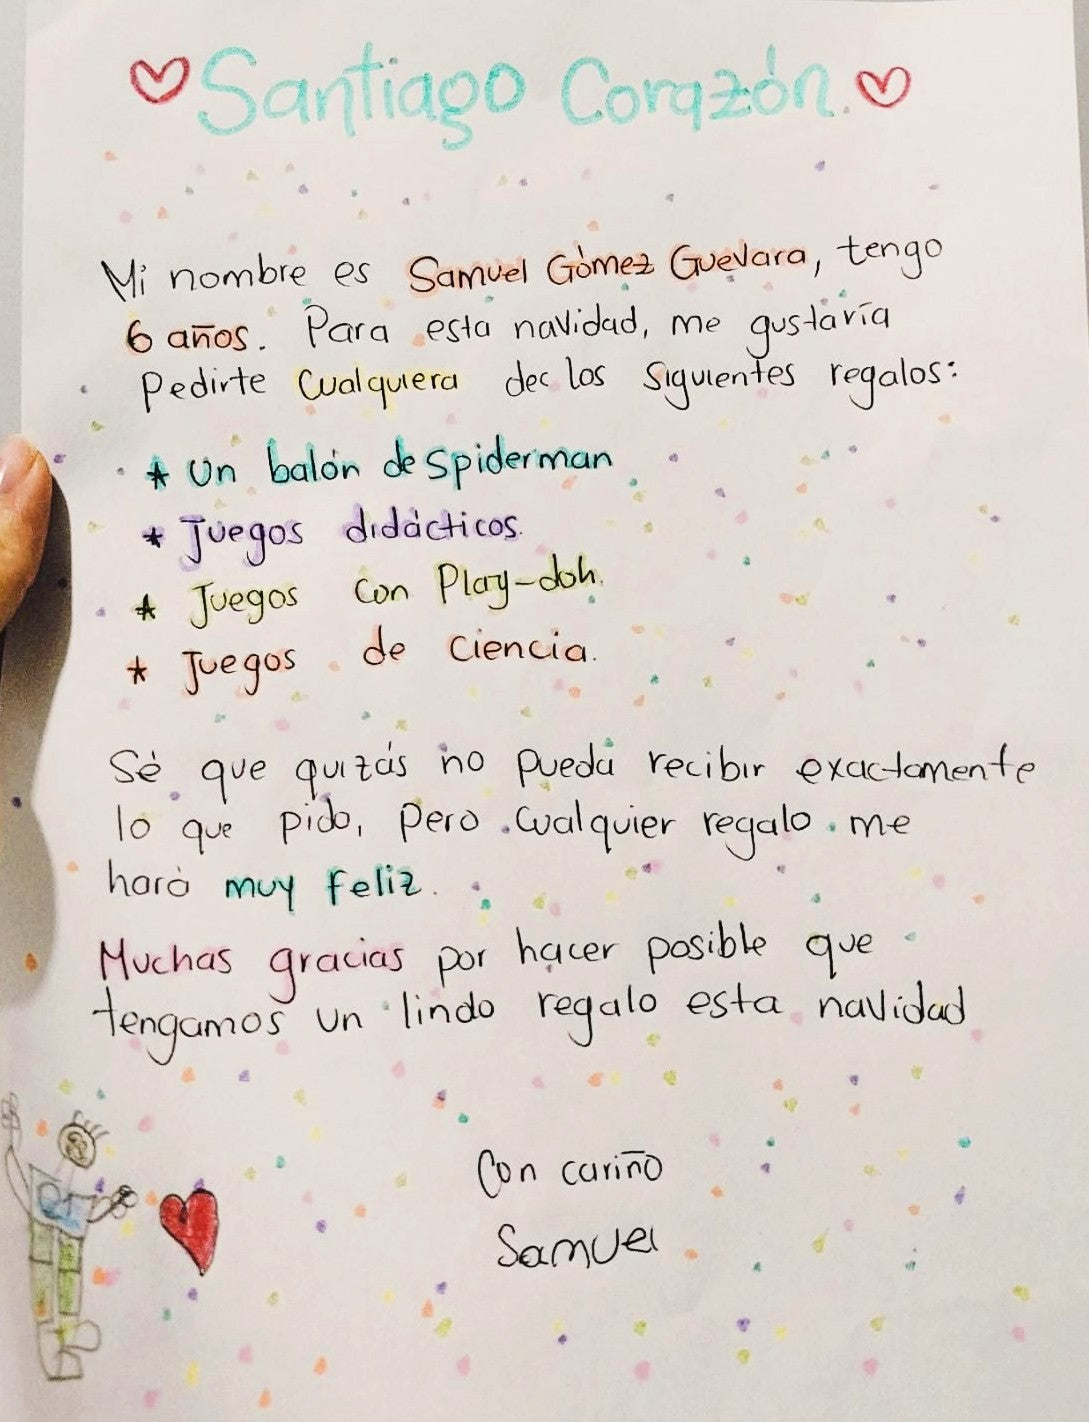 Santiago Corazón.
Mi nombre es Samuel Gómez Guevara, tengo
6 años. Para esta navidad, me gustaría
Pedirte Cualquiera de los Siguientes regalos:
* Un balón de Spiderman
* Juegos didácticos.
* Juegos con Play-doh.
* Juegos de Ciencia.
Sé que quizás no pueda recibir exactamente
lo que pido, pero cualquier regalo me
hará muy feliz.
Muchas gracias por hacer posible que
tengamos un lindo regalo esta navidad
Con cariño
Samuel